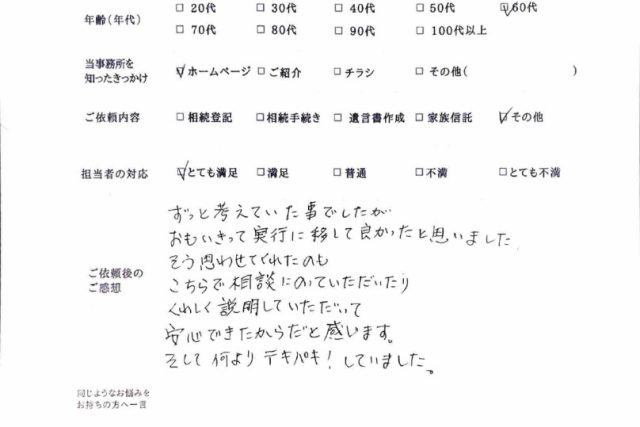 年齢(年代) □20代 □30代 □40代 □50代 ☑60代
□70代 □80代 □90代 □100代以上
当事務所を
知ったきっかけ ☑ホームページ □ご紹介 □チラシ □その他( )
ご依頼内容 □相続登記 □相続手続き □遺言書作成 □家族信託 ☑その他
担当者の対応 ☑とても満足 □満足 □普通 □不満 □とても不満
ご依頼後の
ご感想
ずっと考えていた事でしたが
おもいきって実行に移して良かったと思いました
そう思わせてくれたのも
こちらで相談にのっていただいたり
くわしく説明していただいて
安心できたからだと感います。
そして何よりテキパキ!していました。
同じようなお悩みを
お持ちの方へ一言